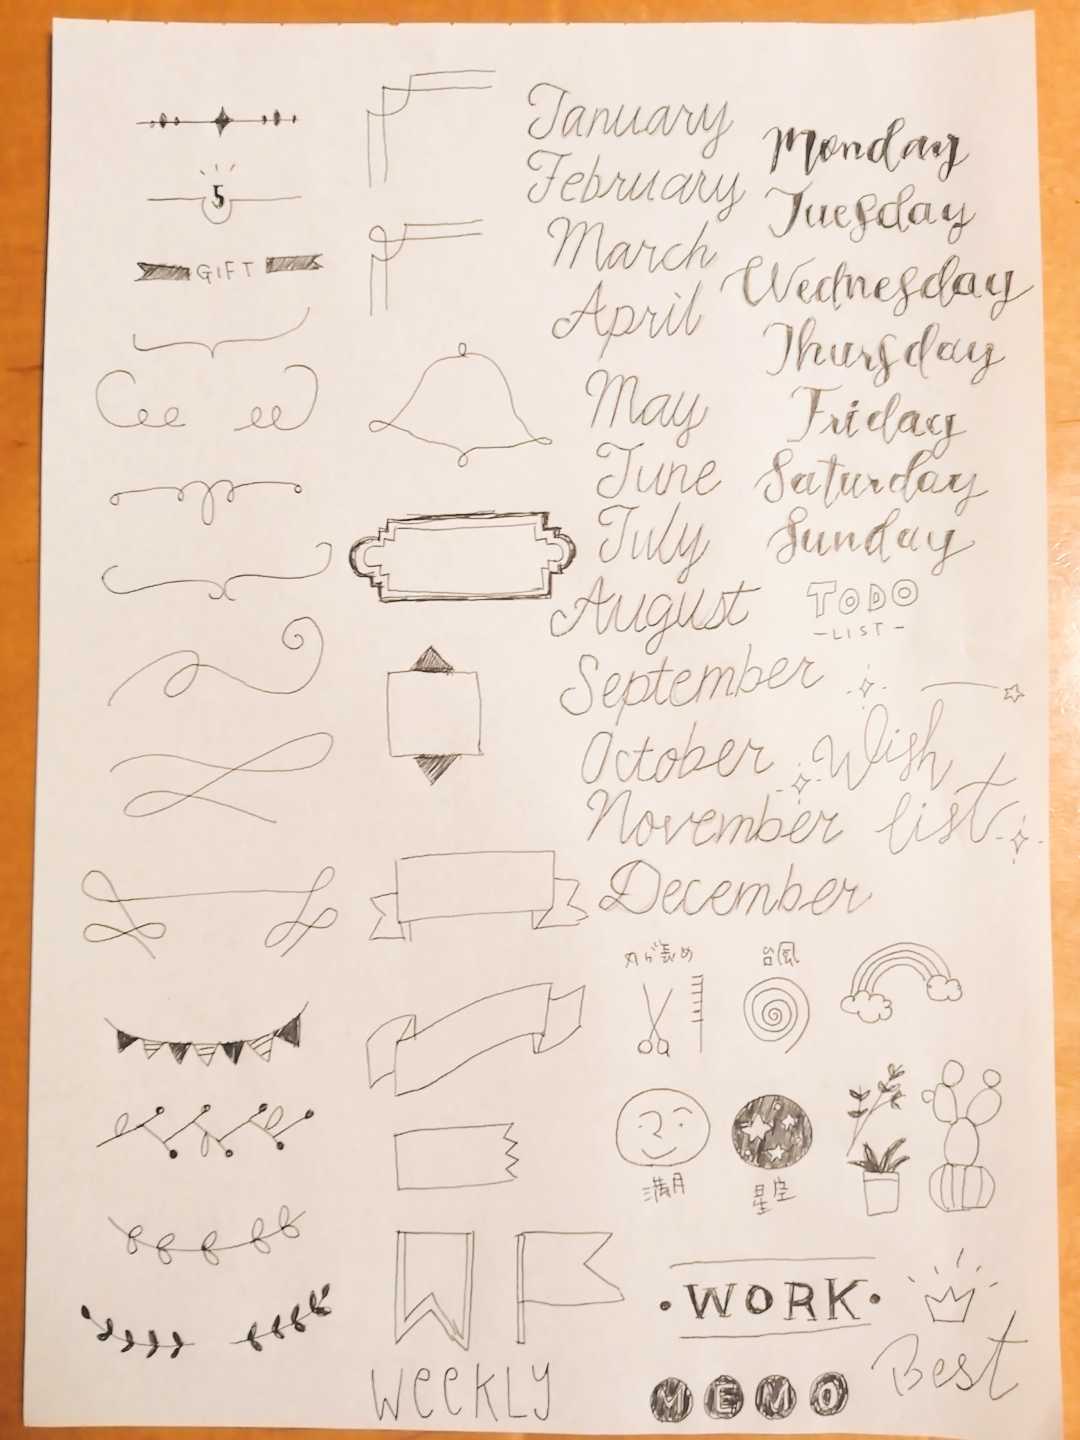 5
GIFT
January
February
March
April
May
June
July
August
September
October
November
December
Monday
Tuesday
Wednesday
Thursday
Friday
Saturday
Sunday
TODO
-LIST-
Wish
list
台風
満月
星空
•WORK•
WEEKLY
MEMO
Best